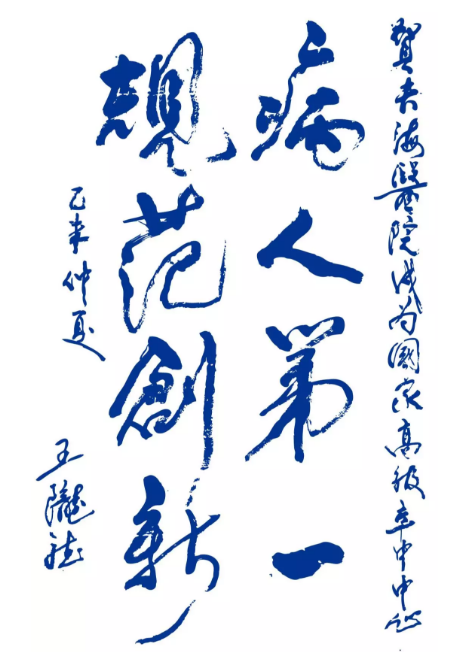 賀长海醫院成为國家高级卒中中心
病人第一
規范創新
乙未仲夏
王隴德